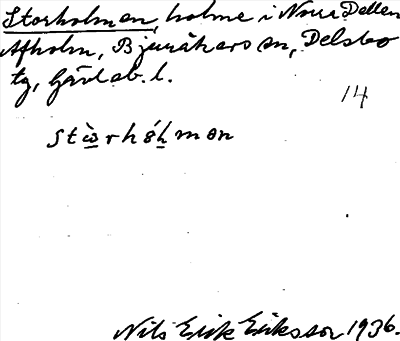 Storholmen, holme i Norra Dellen
Afholm, Bjuråkers sn, Delsbo
tg, Gävleb. l.
14
stòrhólmen
Nils Erik Eriksson 1936.